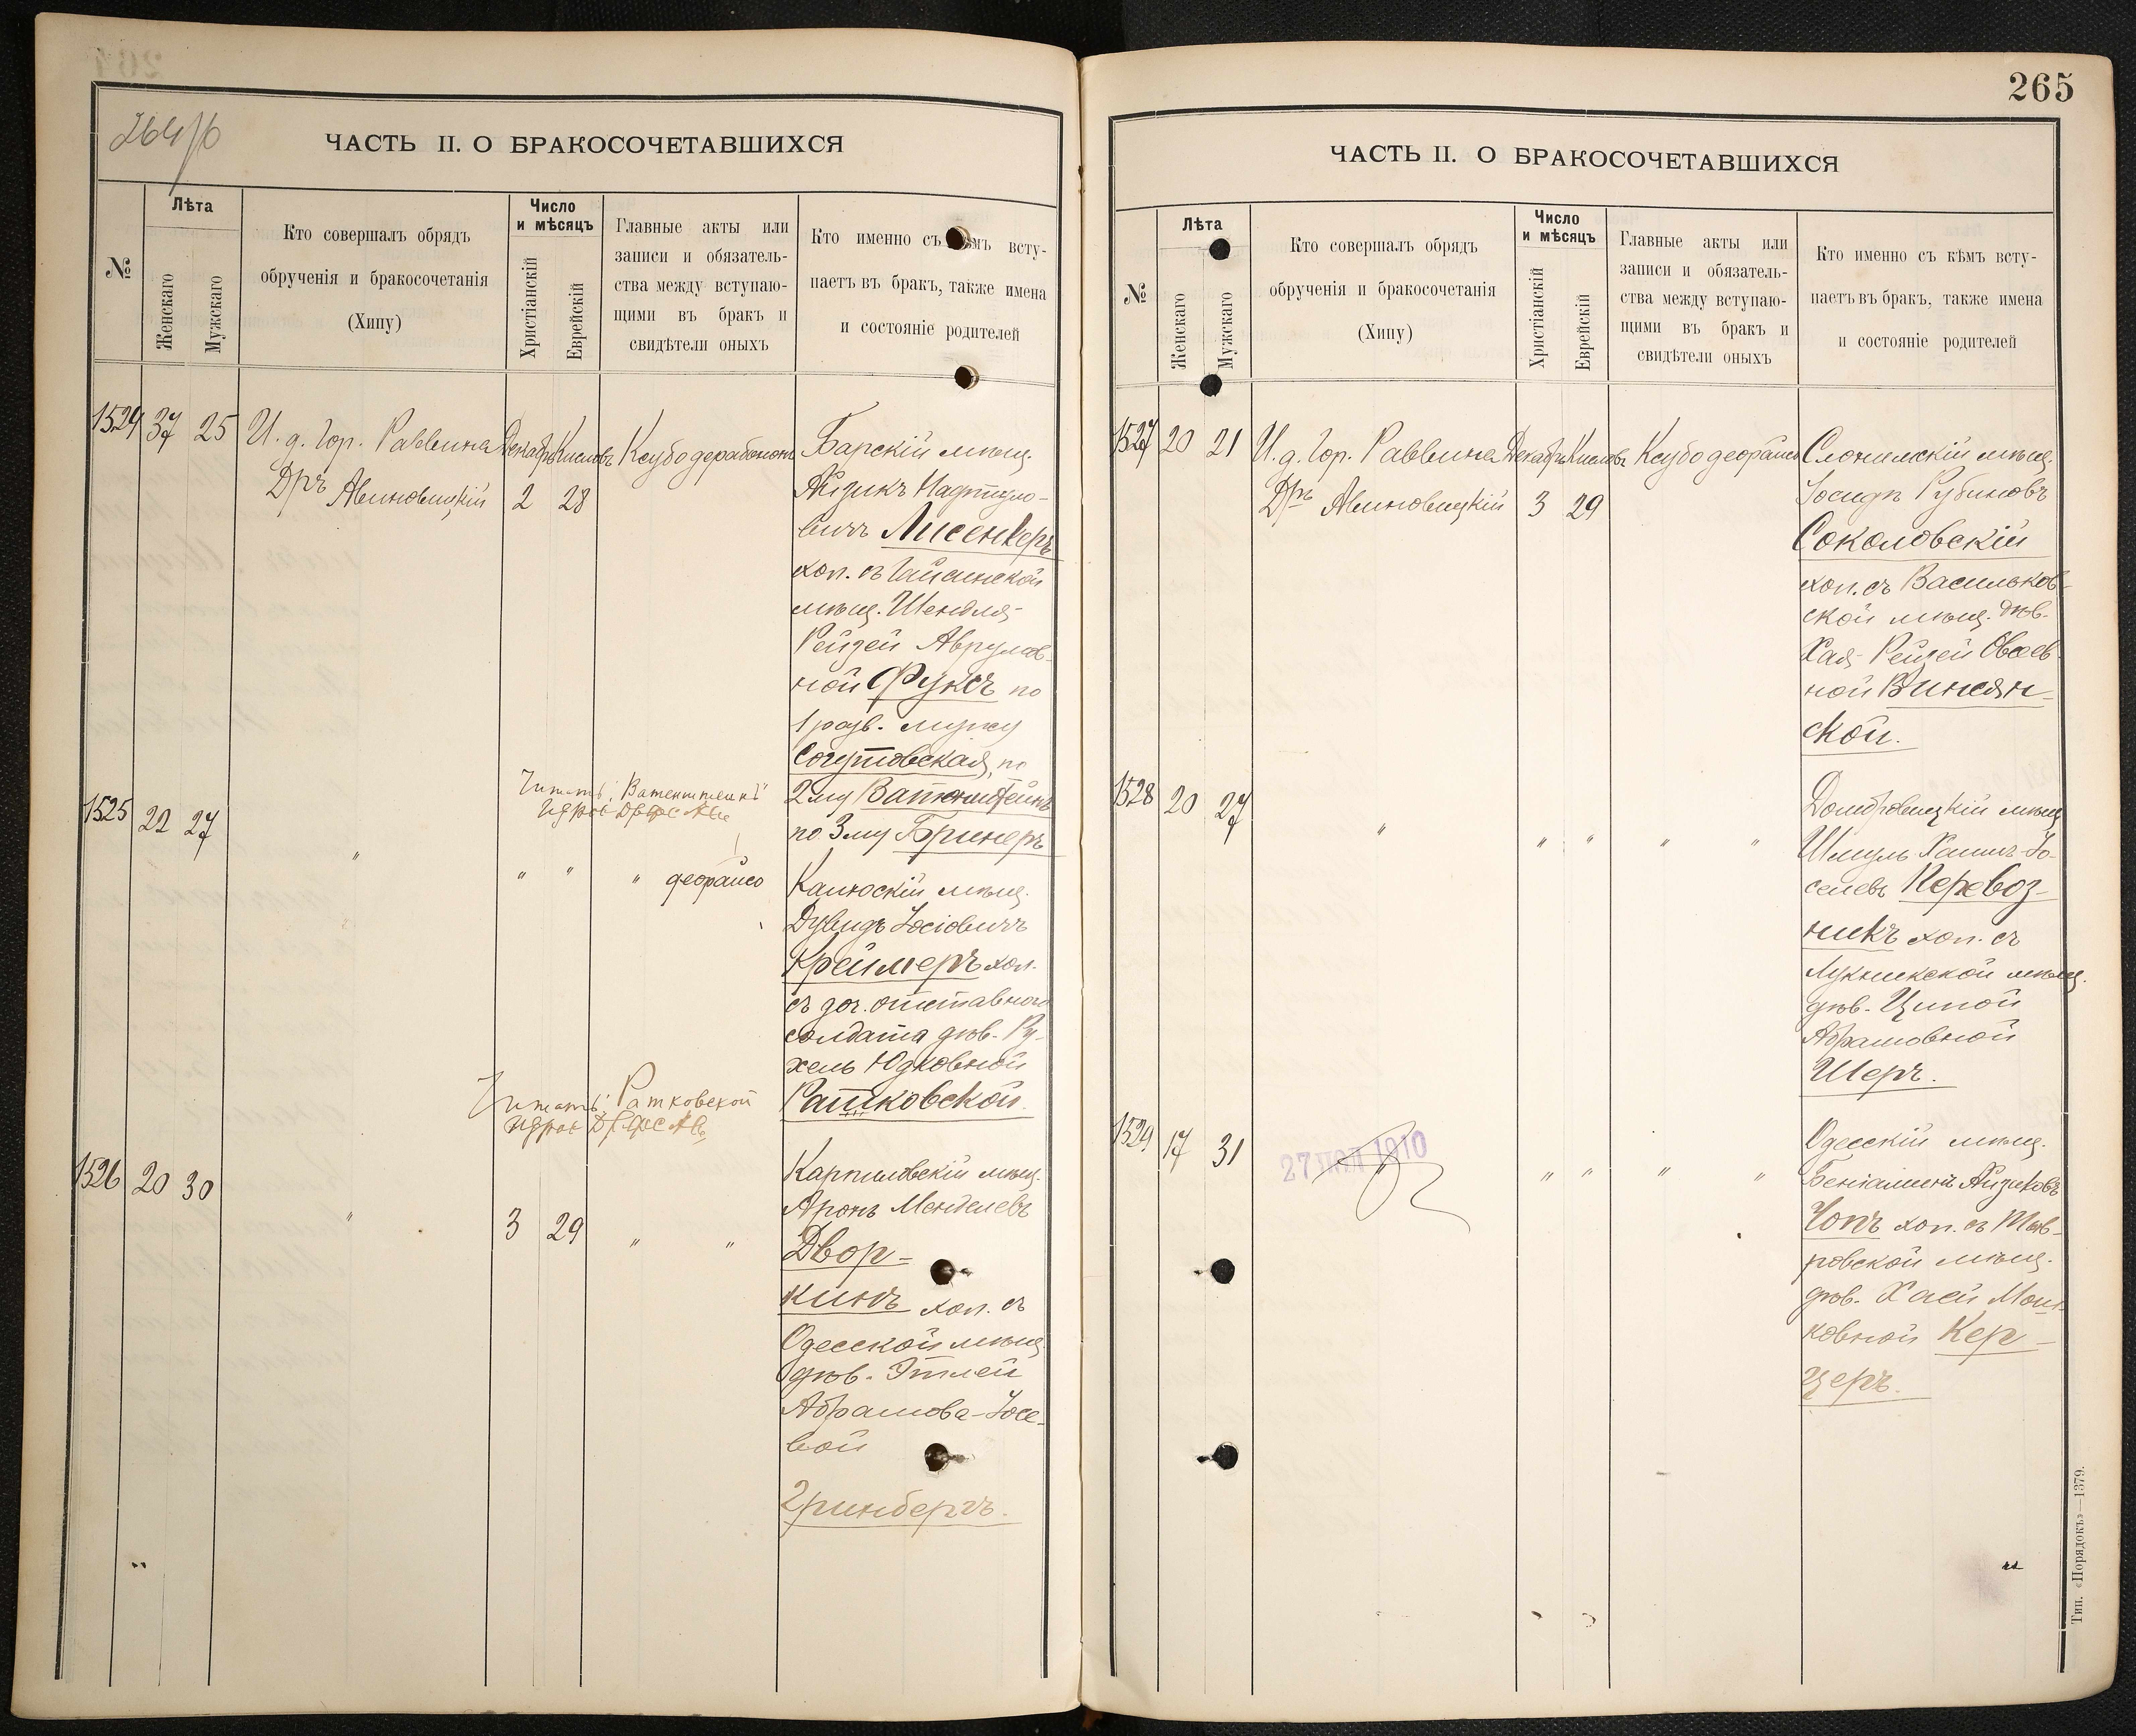 264/б
ЧАСТЬ II. О БРАКОСОЧЕТАВШИХСЯ
№
Лѣта
Женскаго
Мужскаго
Кто совершалъ обрядъ
обрученія и бракосочетанія
(Хипу)
Число
и мѣсяцъ
Христіанскій
Еврейскій
Главные акты или
записи и обязатель-
ства между вступаю-
щими въ бракъ и
свидѣтели оныхъ
Кто именно съ кѣмъ всту-
паетъ въ бракъ, также имена
и состояніе родителей
1524 37 25 И. д. Гор. Раввина Декабрь Кислевъ
Дръ Авиновицкій 2 28
Барскій мѣщ.
Айзикъ Нафтуло-
вичъ Лисенкеръ
хол. съ Гайсинской
мѣщ. Шендля-
Рейзей Аврумов-
ной Фуксъ по
1 разв. мужу
Сочутовская, по
2му Ватенштейнъ
по 3му Бринеръ
Читать: "Ватенштейнъ"
1525 22 27 " " " " деорайсо
Капюскій мѣщ.
Дувидъ Іосіовичъ
Креймеръ хол.
съ доч. отставного
солдата дѣв. Ру-
хель Юдковной
Ратковской.
Читать: Ратковской
1526 20 30 " 3 29 " "
Карпиловскій мѣщ.
Аронъ Менделевъ
Двор-
кинъ хол. съ
Одесской мѣщ.
дѣв. Этлей
Абрамова-Іосе-
вой
Гринбергъ.
265
ЧАСТЬ II. О БРАКОСОЧЕТАВШИХСЯ
№
Лѣта
Женскаго
Мужскаго
Кто совершалъ обрядъ
обрученія и бракосочетанія
(Хипу)
Число
и мѣсяцъ
Христіанскій
Еврейскій
Главные акты или
записи и обязатель-
ства между вступаю-
щими въ бракъ и
свидѣтели оныхъ
Кто именно съ кѣмъ всту-
паетъ въ бракъ, также имена
и состояніе родителей
1527 20 21 И. д. Гор. Раввина Декабрь Кислевъ Ксубо деорайсо
Дръ Авиновицкій 3 29
Слонимскій мѣщ.
Іосифъ Рубиновъ
Соколовскій
хол. съ Васильков-
ской мѣщ. дѣв.
Хая-Рейзей Овсеев-
ной Винсян-
ской.
1528 20 27 " " " " "
Домбровицкій мѣщ.
Шмуль Хаимъ-Іо-
селевъ Перевоз-
никъ хол. съ
Лукникской мѣщ.
дѣв. Ципой
Абрамовной
Шеръ.
1529 17 31 " " " " "
27 ІЮЛ 1910
Одесскій мѣщ.
Беніаминъ Айзиковъ
Чопъ хол. съ Тыв-
ровской мѣщ.
дѣв. Хаей Мош-
ковной Кер-
церъ.
Тип. «Порядокъ»—1379.